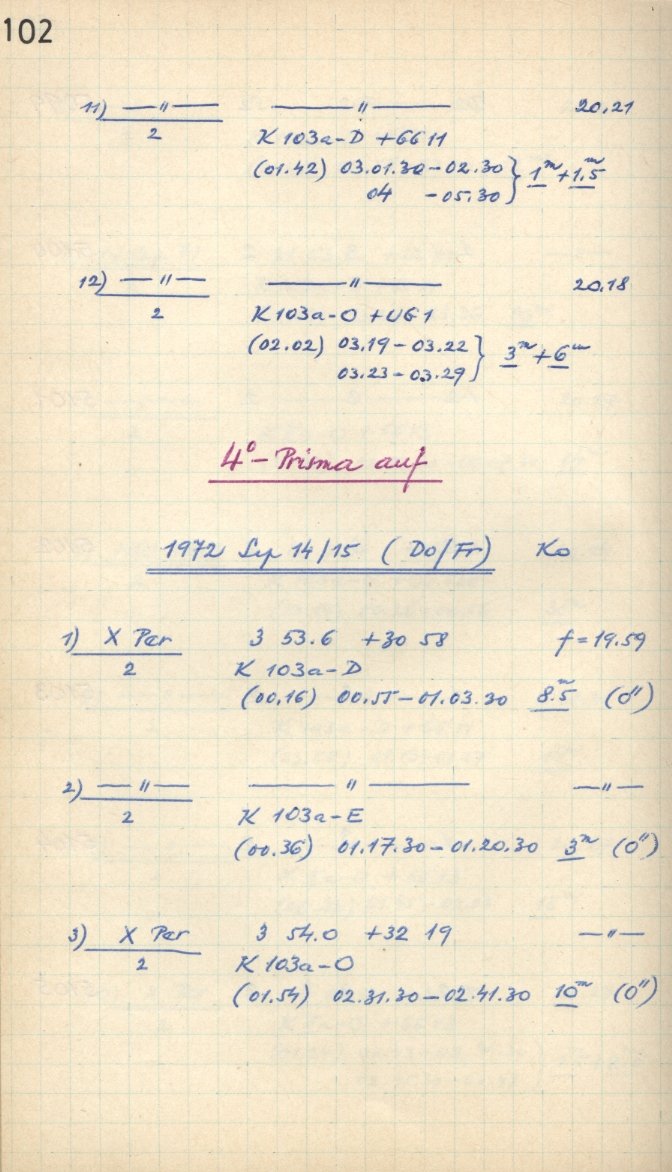 102
11) —〃— —〃— 20.21
2 K 103a-D + GG11
(01.42) 03.01.30 - 02.30 } 1ᵐ + 1.5ᵐ
04 - 05.30
12) —〃— —〃— 20.18
2 K 103a-O + UG1
(02.02) 03.19 - 03.22 } 3ᵐ + 6ᵐ
03.23 - 03.29
4°- Prisma auf
1972 Sep 14/15 (Do/Fr) Ko
1) X Per 3 53.6 +30 58 f = 19.59
2 K 103a-D
(00.16) 00.55 - 01.03.30 8.5ᵐ (0")
2) —〃— —〃— —〃—
2 K 103a-E
(00.36) 01.17.30 - 01.20.30 3ᵐ (0")
3) X Per 3 54.0 +32 19 —〃—
2 K 103a-O
(01.54) 02.31.30 - 02.41.30 10ᵐ (0")